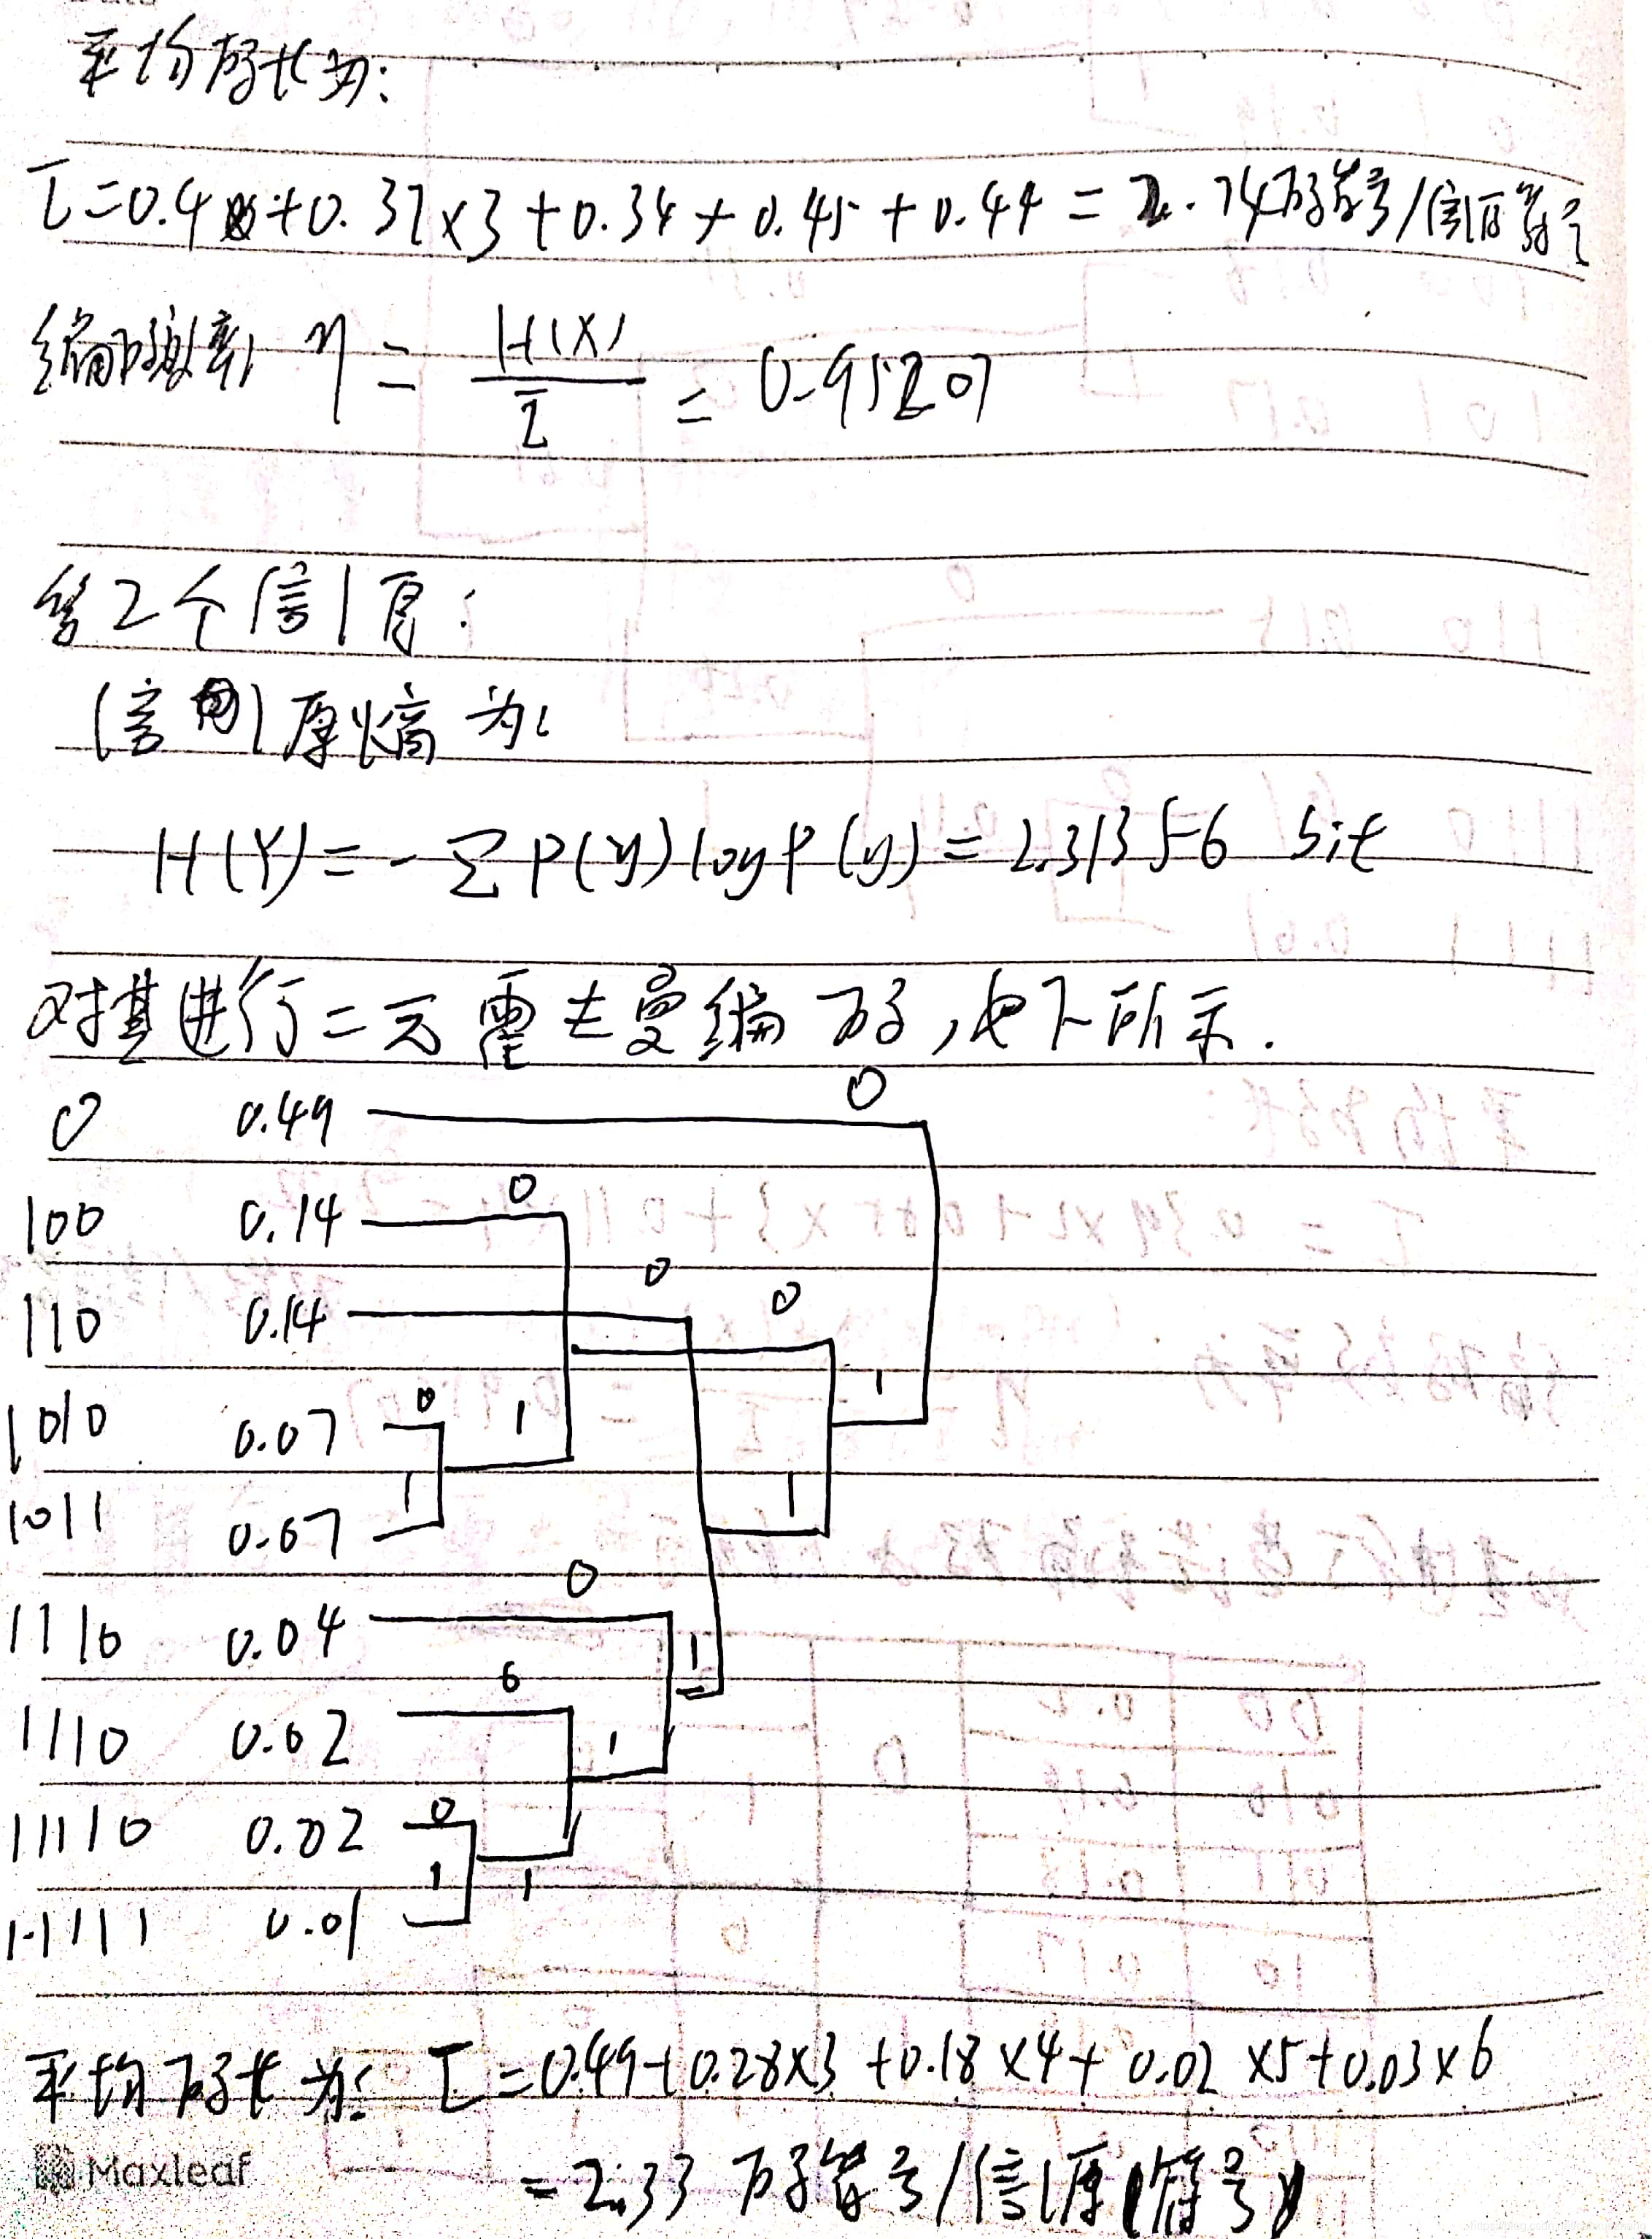 平均码长为:
L̄=0.4+0.37×3+0.34+0.45+0.44=2.74码符号/信源符号
编码效率 η = H(X)/L̄ = 0.95207
第2个信源:
信源熵为:
H(Y)=-∑P(y)logP(y)=2.31356 bit
对其进行二元霍夫曼编码,如下所示.
0 0.49 0
100 0.14 0
110 0.14 0 0
1010 0.07 0 1 1
1011 0.07 1 1
1110 0.04 0 1
1110 0.02 0 1
11110 0.02 0
11111 0.01 1 1
平均码长为: L̄=0.49+0.28×3+0.18×4+0.02×5+0.03×6
=2.33 码符号/信源(符号)
Maxleaf